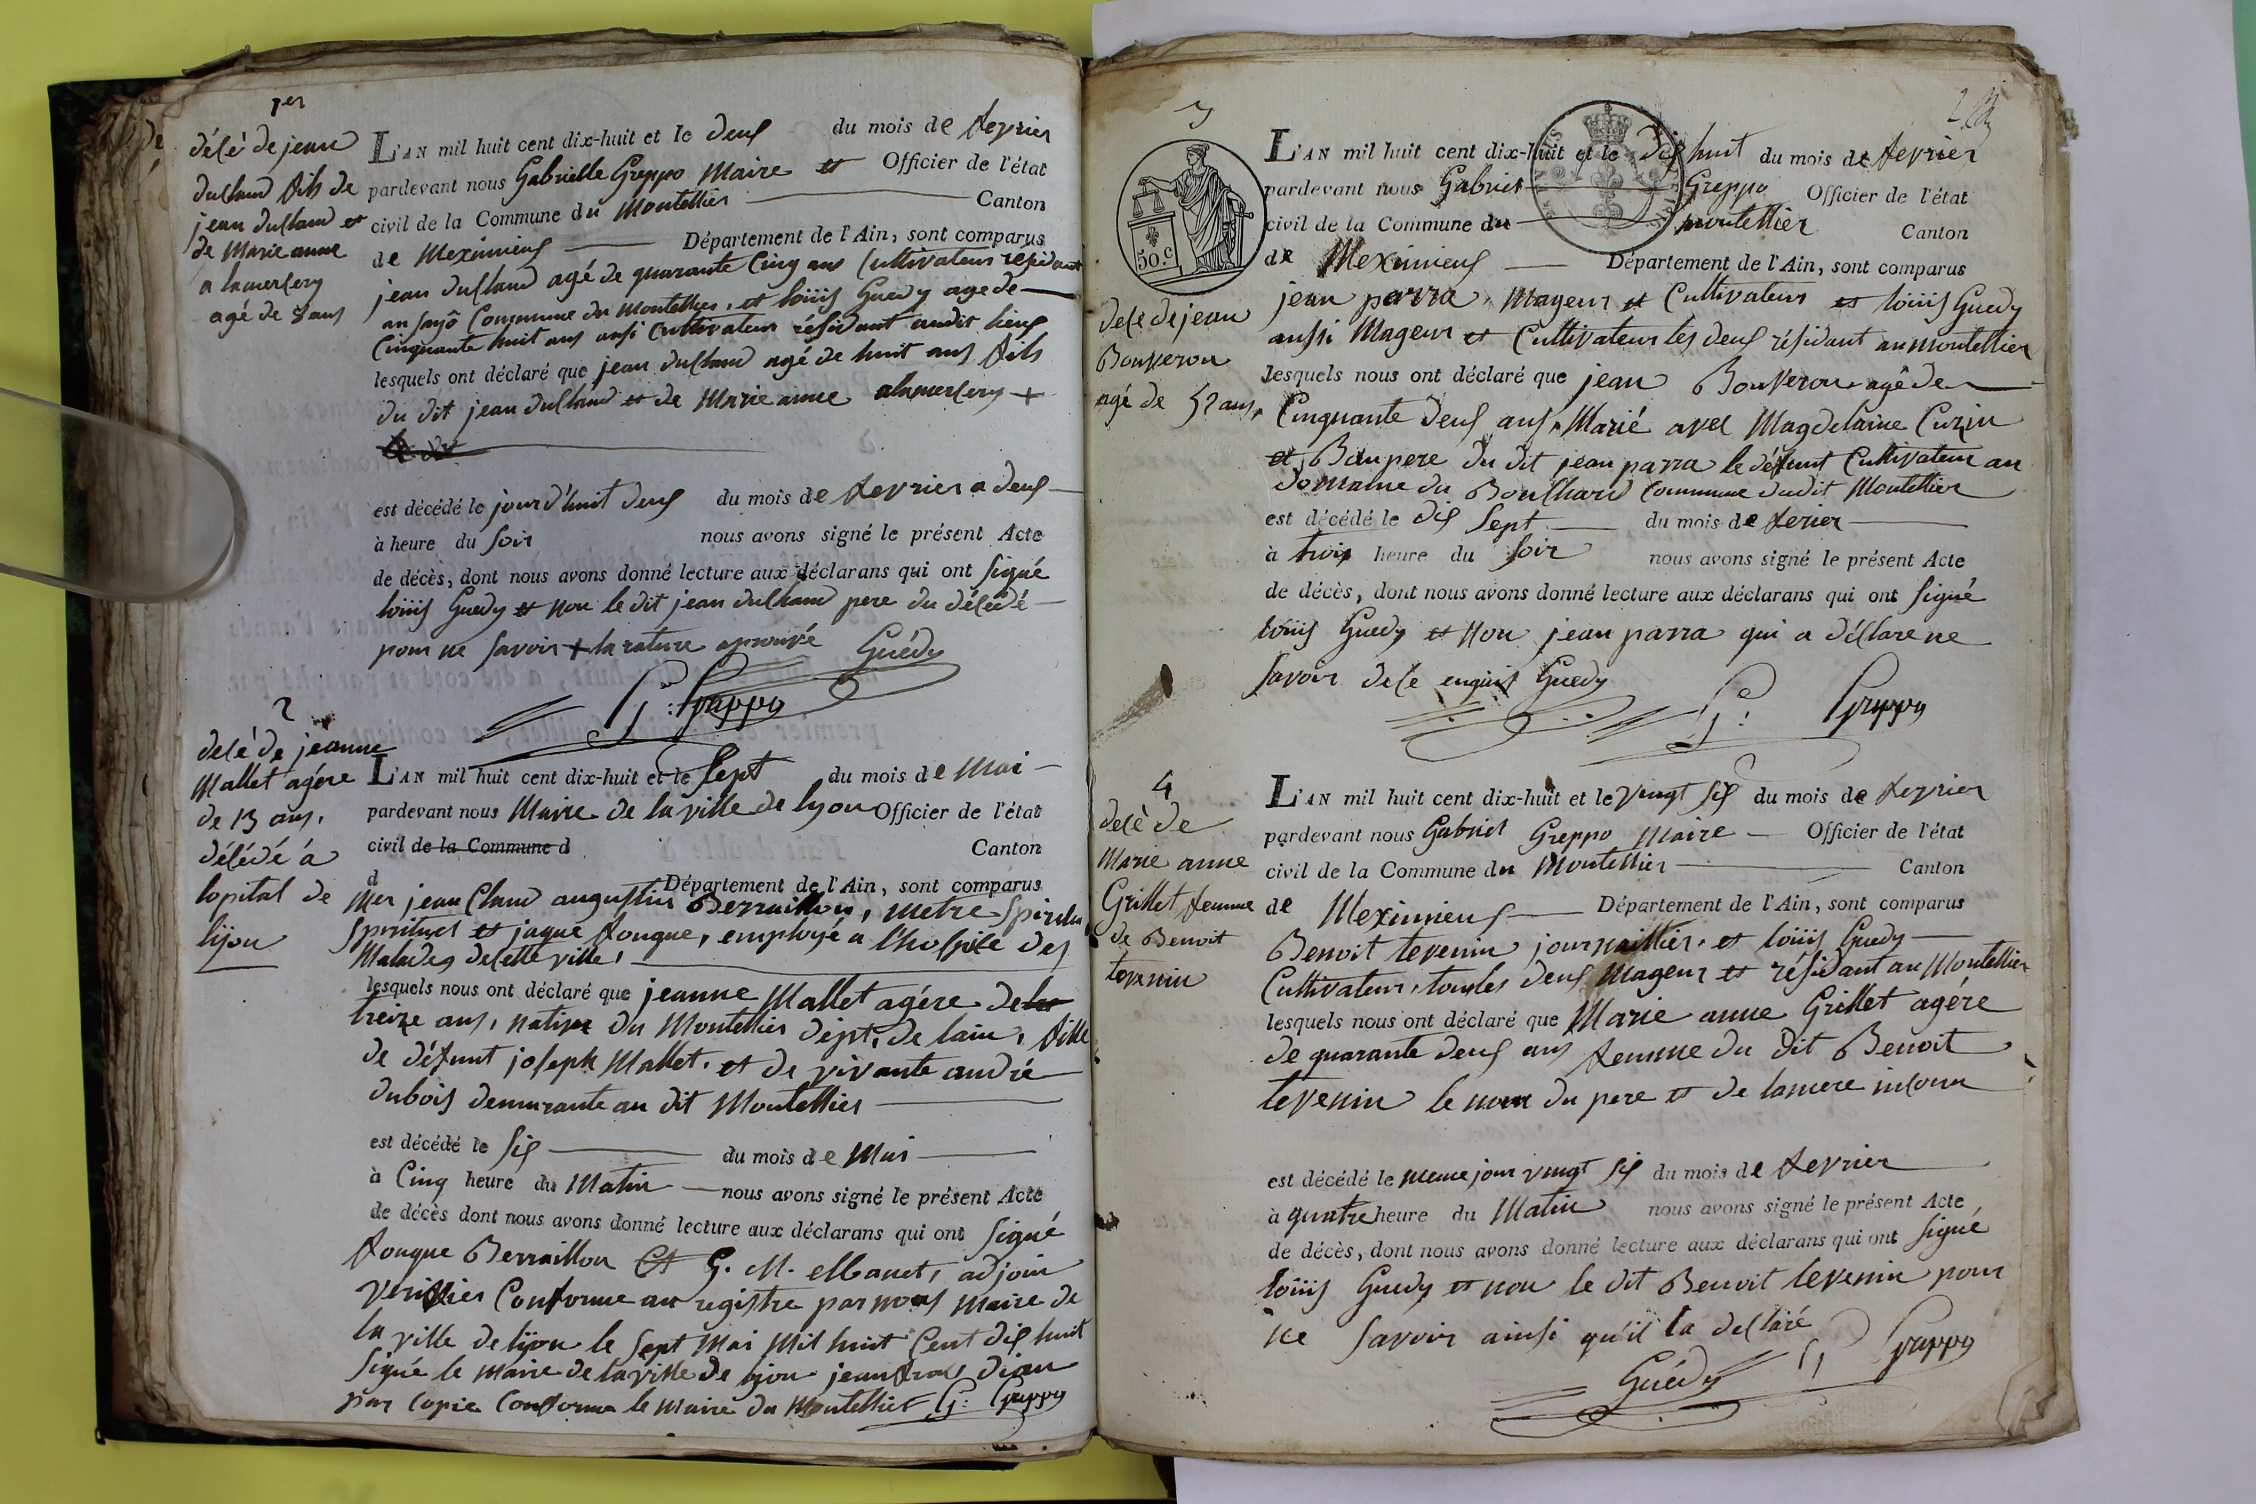 1er
décé de jean
duclaud fils de
jean duclaud et
de Marie anne
agé de 8 ans
L'AN mil huit cent dix-huit et le deux du mois de fevrier
pardevant nous Gabrielle Greppo Maire et Officier de l'état
civil de la Commune du Montellier Canton
de Meximieux Département de l'Ain, sont comparus
jean duclaud agé de quarante Cinq ans Cultivateur résidant
Commune du Montellier, et loüis Guedy age de
Cinquante huit ans aussi Cultivateur résidant audit lieux
lesquels ont déclaré que jean duclaud agé de huit ans fils
du dit jean duclaud et de Marie anne +
est décédé le jour d'huit deux du mois de fevrier a deux
à heure du soir nous avons signé le présent Acte
de décès, dont nous avons donné lecture aux déclarans qui ont signé
loüis Guedy et non le dit jean duclaud pere du décédé
pour ne savoir + la rature aprouvé Guédy
G: Greppo
2
decé de jeanne
Mallet agére
de 13 ans,
décédé à
lopital de
lijon
L'AN mil huit cent dix-huit et le sept du mois de Mai
pardevant nous Maire de la ville de lyon Officier de l'état
civil de la Commune d Canton
d Département de l'Ain, sont comparus
Mer jean Claud augustin Berraillon, metre spirulu
spirituel et jaque fouque, employé a l'hospice des
Malades decette ville,
lesquels nous ont déclaré que jeanne Mallet agére de
treize ans, native du Montellier dept. de lain, fille
de défunt joseph Mallet, et de vivante andré
dubois demurante au dit Montellier
est décédé le six du mois de Mai
à Cinq heure du Matin nous avons signé le présent Acte
de décès dont nous avons donné lecture aux déclarans qui ont signé
fouque Berraillon et G. M. adjoin
verifier Conforme au registre par nous maire de
la ville de lijon le sept Mai Mil huit Cent dix huit
signé le maire de la ville de lijon
par Copie Conforme le maire du Montellier G: Greppo
3
50.c
decé de jean
Bouveron
agé de 52 ans,
L'AN mil huit cent dix-huit et le dix huit du mois de fevrier
pardevant nous Gabriel Greppo Officier de l'état
civil de la Commune du montellier Canton
de Meximieux Département de l'Ain, sont comparus
jean parra, Mageur et Cultivateur et loüis Guedy
aussi Mageur et Cultivateur les deux résidant au montellier
lesquels nous ont déclaré que jean Bouveron agé de
Cinquante deux ans, Marié avec Magdelaine Curzin
et Baupere du dit jean parra le défunt Cultivateur au
domaine du Bouchard Commune dudit Montellier
est décédé le dix sept du mois de ferier
à trois heure du soir nous avons signé le présent Acte
de décès, dont nous avons donné lecture aux déclarans qui ont signé
loüis Guedy et Non jean parra qui a déclare ne
savoir de ce enquis Guedy
G: Greppo
4
decè de
Marie anne
Grillet femme
de Benoit
tevenin
L'AN mil huit cent dix-huit et le vingt six du mois de fevrier
pardevant nous Gabriel Greppo Maire Officier de l'état
civil de la Commune du Montellier Canton
de Meximieux Département de l'Ain, sont comparus
Benoit tevenin journaillier, et loüis Guedy
Cultivateur, tousles deux Mageur et résidant au Montellier
lesquels nous ont déclaré que Marie anne Grillet agére
de quarante deux ans femme du dit Benoit
tevenin le nom du pere et de lamere inconu
est décédé le meme jour vingt six du mois de fevrier
à quatre heure du Matin nous avons signé le présent Acte
de décès, dont nous avons donné lecture aux déclarans qui ont signé
loüis Guedy et non le dit Benoit tevenin pour
ne savoir ainsi qu'il la declaré
Guédy G Greppo